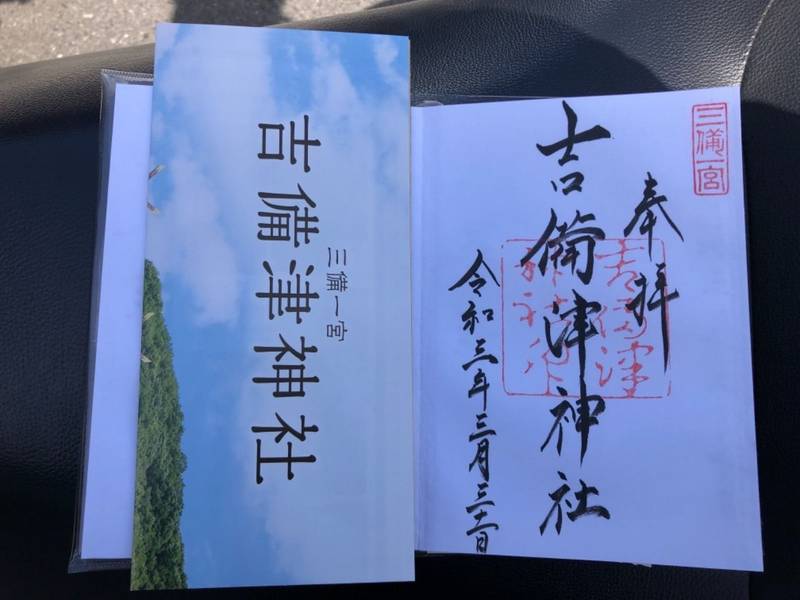 三備一宮
吉備津神社
三備一宮
奉拝
吉備津神社
令和三年三月三十一日